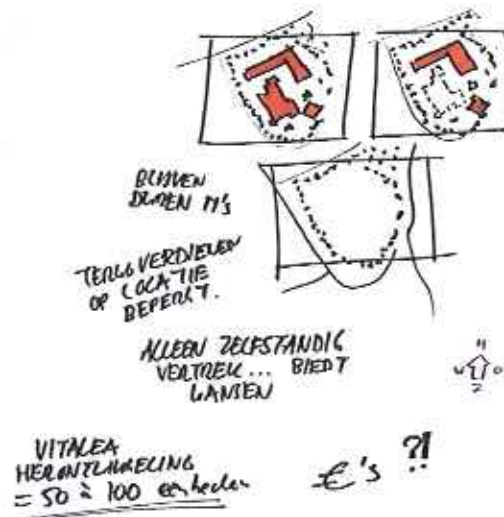 BLIJVEN
DUREN M's
TERUGVERDIENEN
OP LOCATIE
BEPERKT.
ALLEEN ZELFSTANDIG
VERTREK... BIEDT
KANSEN
N
W O
Z
VITALEA
HERONTWIKKELING
= 50 à 100 eenheden
€'s ?!